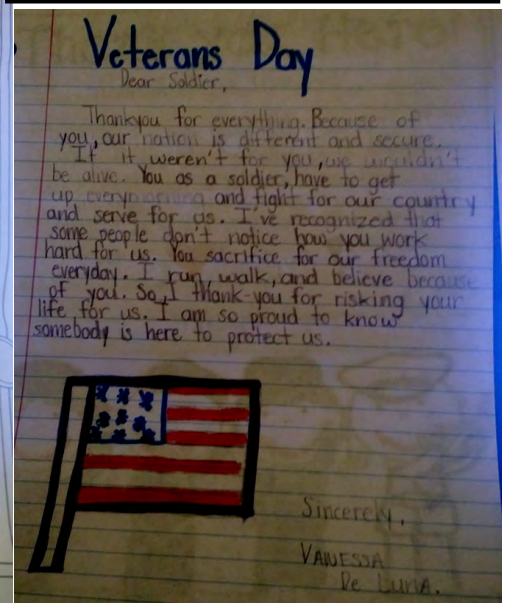 Veterans Day
Dear Soldier,
Thankyou for everything. Because of
you, our nation is different and secure.
If it weren't for you, we wouldn't
be alive. You as a soldier, have to get
up everymorning and fight for our country
and serve for us. I've recognized that
some people don't notice how you work
hard for us. You sacrifice for our freedom
everyday. I run, walk, and believe because
of you. So, I thank-you for risking your
life for us. I am so proud to know
somebody is here to protect us.
Sincerely,
VANESSA
De LUNA.